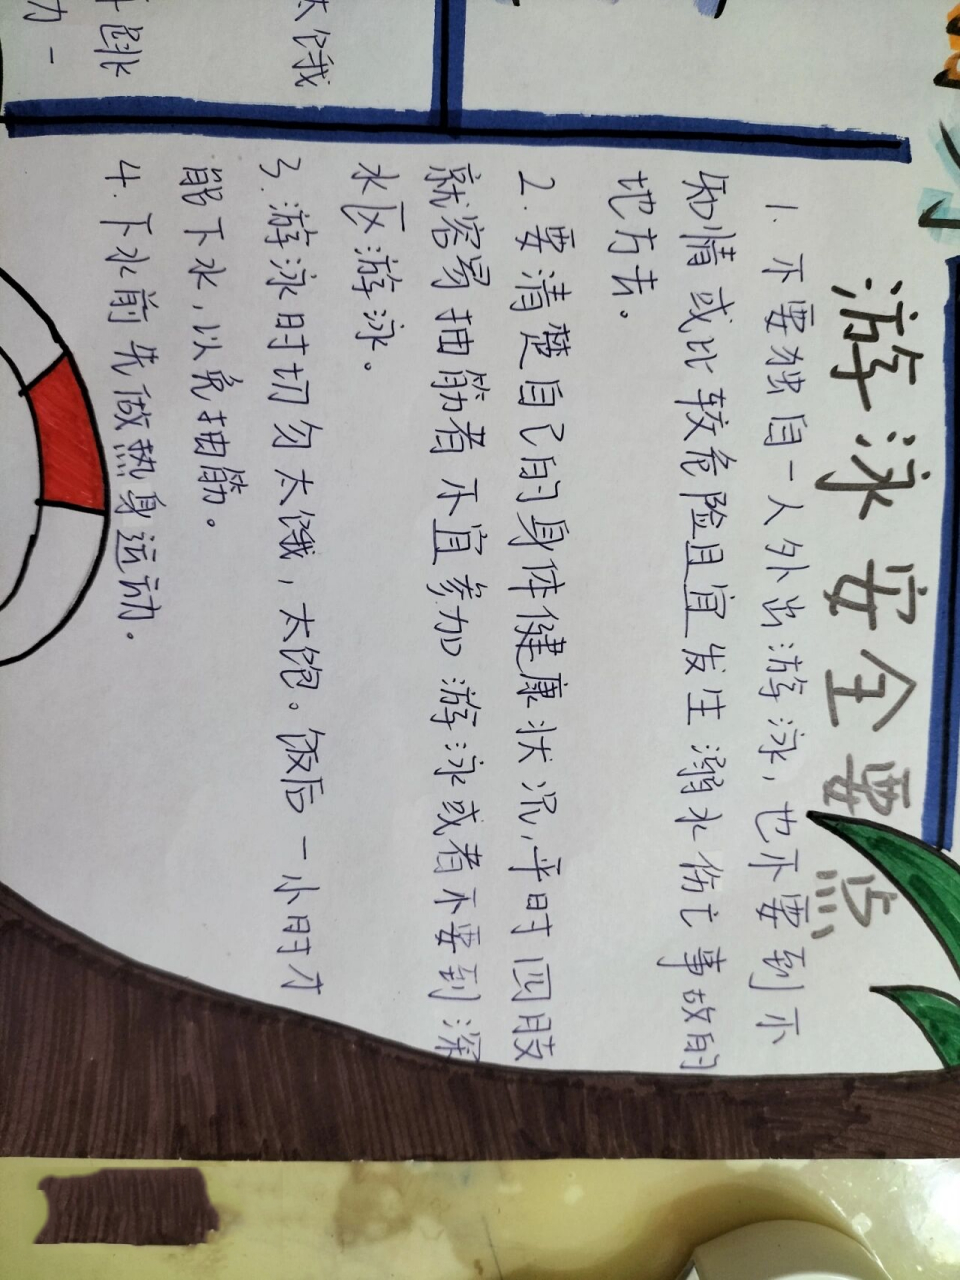 游泳安全要点
1. 不要独自一人外出游泳，也不要到不
知情或比较危险且宜发生溺水伤亡事故的
地方去。
2. 要清楚自己的身体健康状况，平时四肢
就容易抽筋者不宜参加游泳或者不要到深
水区游泳。
3. 游泳时切勿太饿，太饱。饭后一小时才
能下水，以免抽筋。
4. 下水前先做热身运动.
太饿